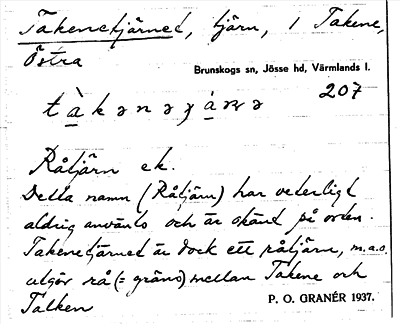 Takenetjärnet, tjärn, i Takene,
Östra
Brunskogs sn, Jösse hd, Värmlands l.
207
Råtjärn ek.
Detta namn (Råtjärn) har vederligt
aldrig använts och är okänt på orten.
Takenetjärnet är dock ett råtjärn, m.a.o.
utgör rå (= gräns) mellan Takene och
Talken
P. O. GRANÉR 1937.